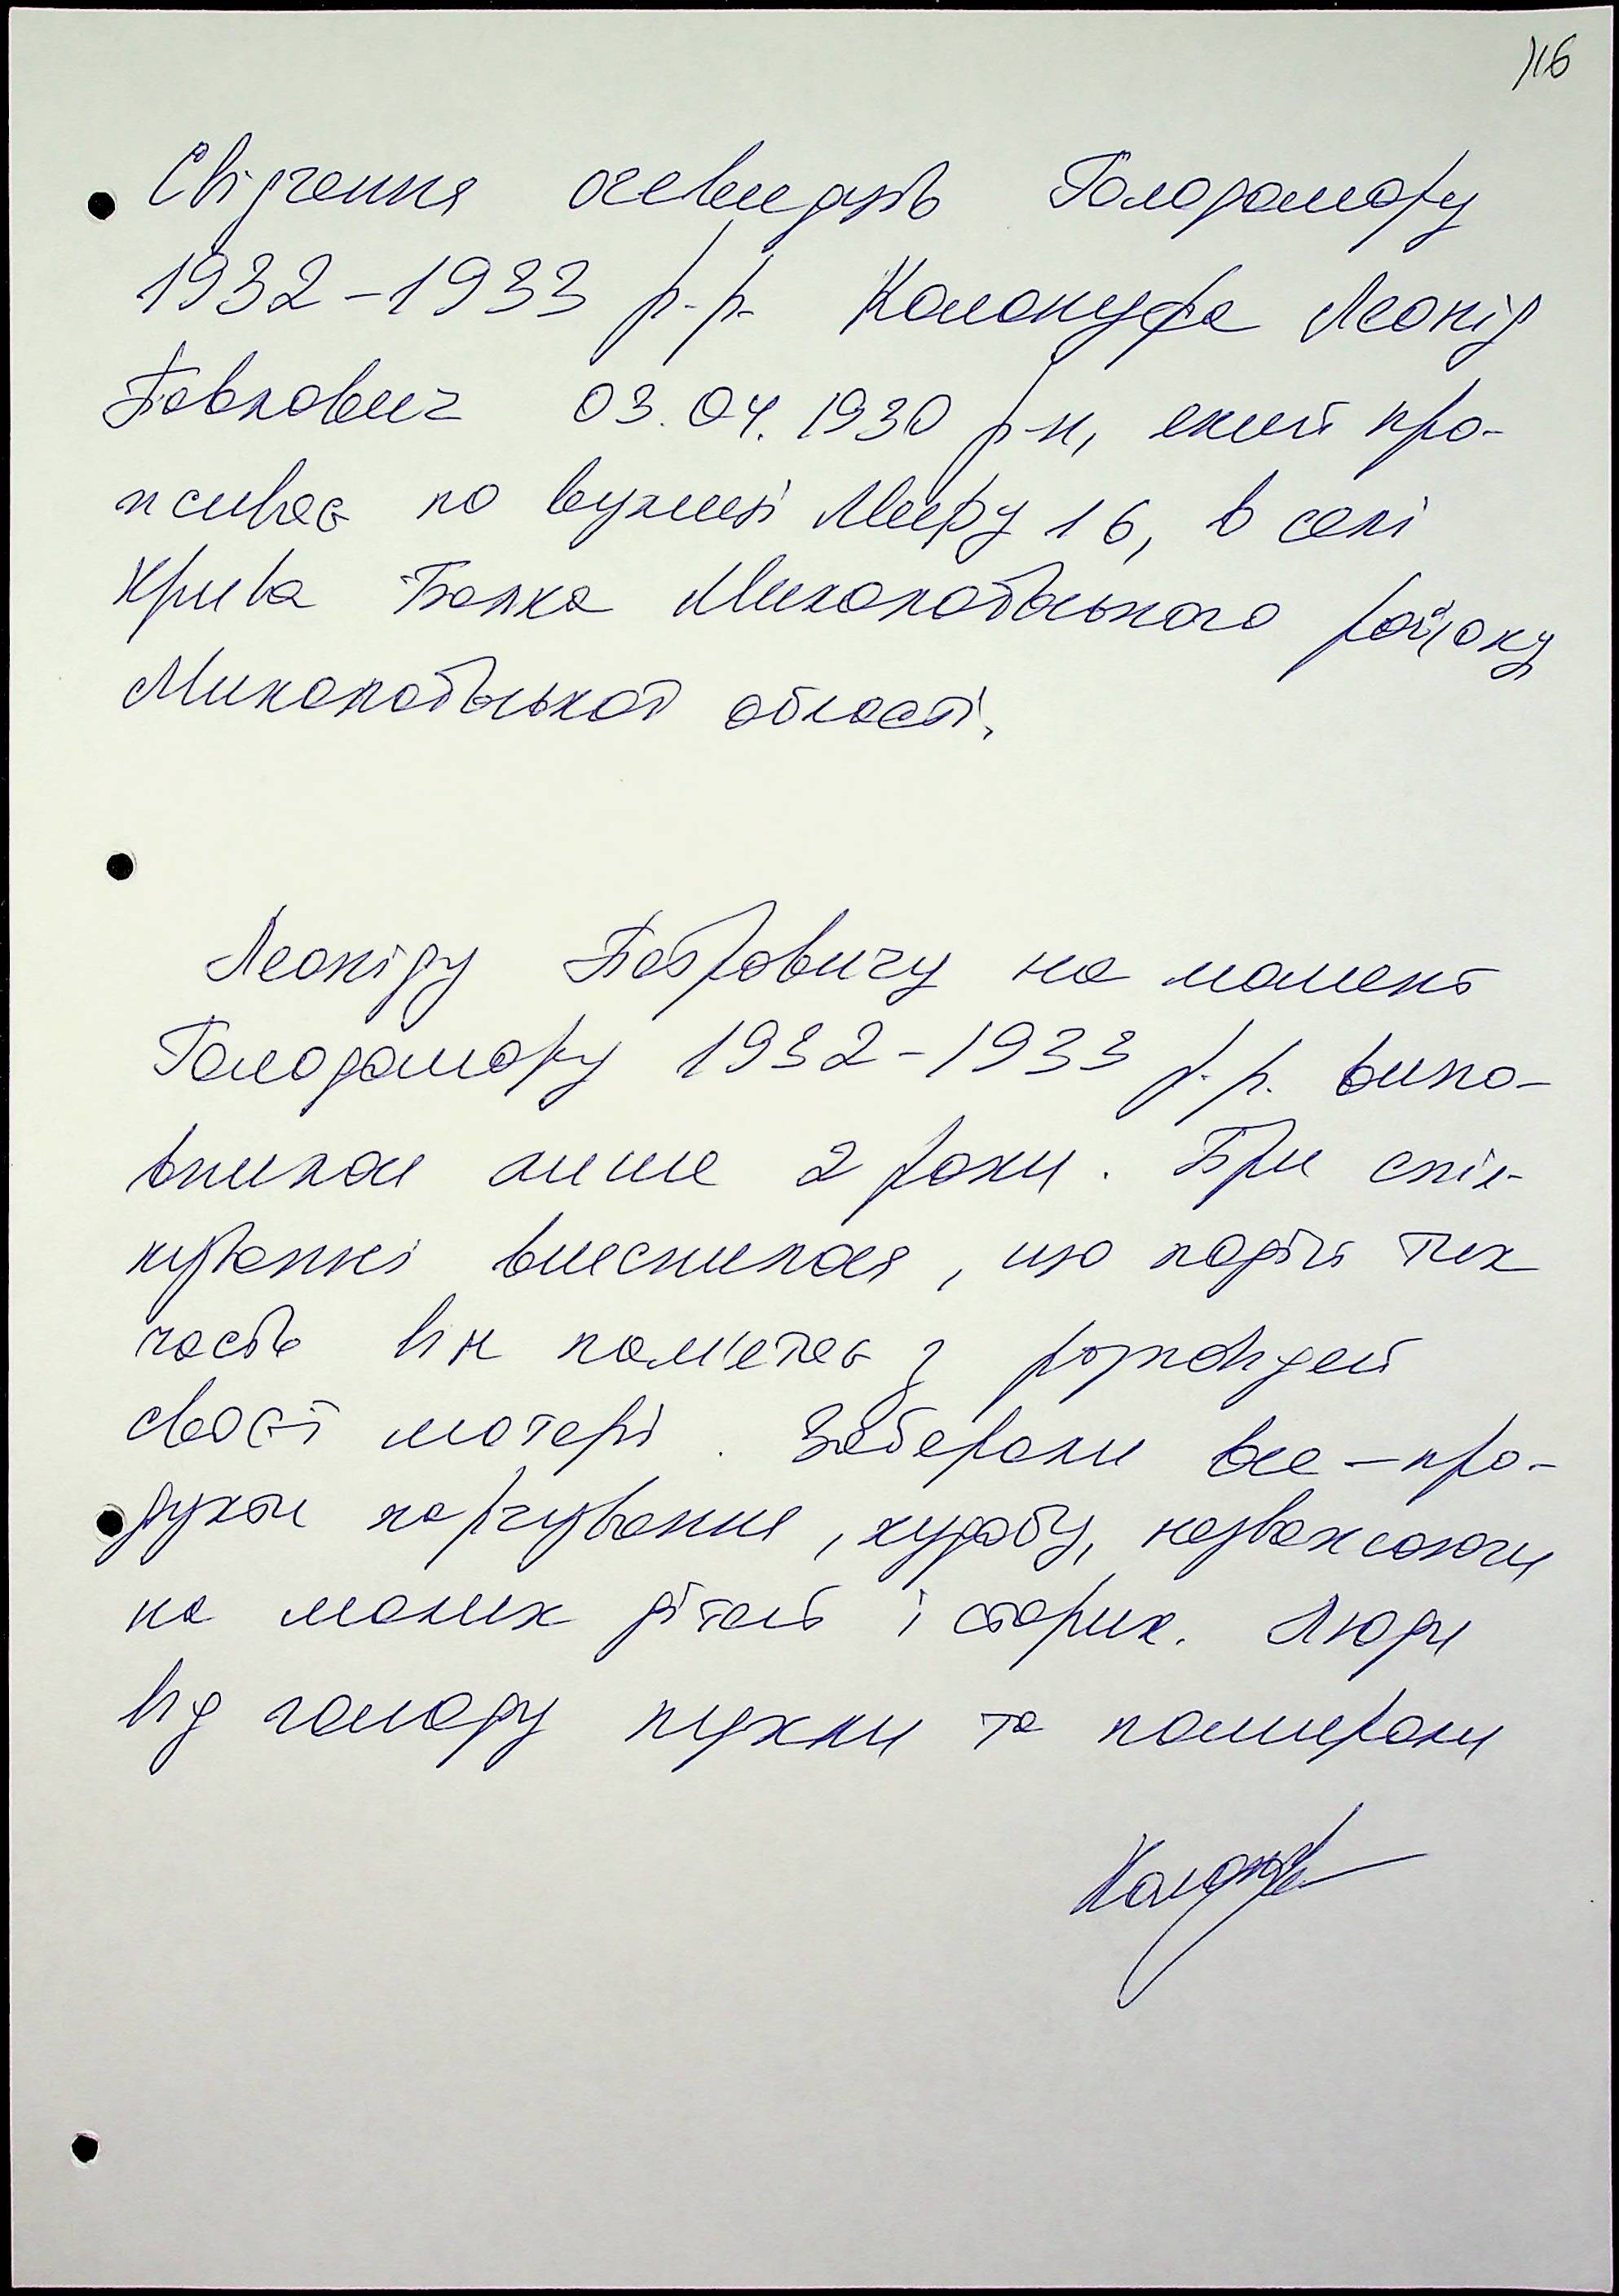 116
Свідчення очевидців Голодомору
1932-1933 р.р. Калануфа Леонід
Павлович 03.04.1930 р-н, який про-
живає по вулиці Миру 16, в селі
Крива Балка Миколаївського району
Миколаївської області.
Леоніду Петровичу на момент
Голодомору 1932-1933 р.р. випо-
внилося лише 2 роки. При спіл-
куванні вияснилося, що події тих
часів він пам'ятає з розповідей
своєї матері. Забирали все - про-
дукти харчування, худобу, незважаючи
на малих дітей і старих. Люди
від голоду пухли та помирали